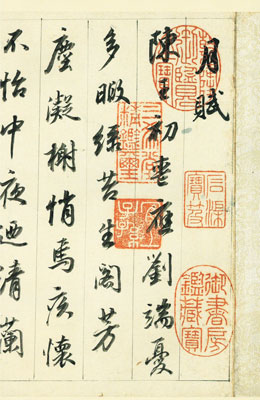 月賦
陳王初喪應劉端憂
多暇綠苔生閣芳
塵凝榭悄焉疚懷
不怡中夜迺清蘭
石渠寶笈
御書房鑑藏寶
三希堂精鑑璽
宜子孫